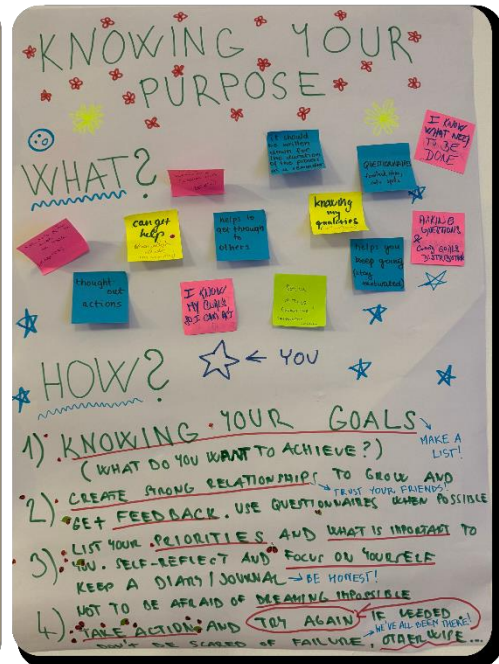 KNOWING YOUR
PURPOSE
WHAT?
It should
be written
down for
the duration
of the
QUESTIONNAIRES
I KNOW
WHAT NEEDS
TO BE
DONE
can get
help.
helps to
get through
to
others
knowing
my
qualities
helps you
keep going
(stay
motivated)
ASKING
QUESTIONS
&
GOALS
thought-
out
actions
I KNOW
MY GOALS
SO I CAN ACT
HOW?
← YOU
1) KNOWING YOUR GOALS
MAKE A
LIST!
(WHAT DO YOU WANT TO ACHIEVE?)
2) CREATE STRONG RELATIONSHIPS TO GROW AND
→ TRUST YOUR FRIENDS!
GET FEEDBACK. USE QUESTIONNAIRES WHEN POSSIBLE
3) LIST YOUR PRIORITIES AND WHAT IS IMPORTANT TO
YOU. SELF-REFLECT AND FOCUS ON YOURSELF
KEEP A DIARY / JOURNAL → BE HONEST!
4) NOT TO BE AFRAID OF DREAMING IMPOSSIBLE
TAKE ACTION AND TRY AGAIN IF NEEDED
→ WE'VE ALL BEEN THERE!
DON'T BE SCARED OF FAILURE, OTHERWISE...